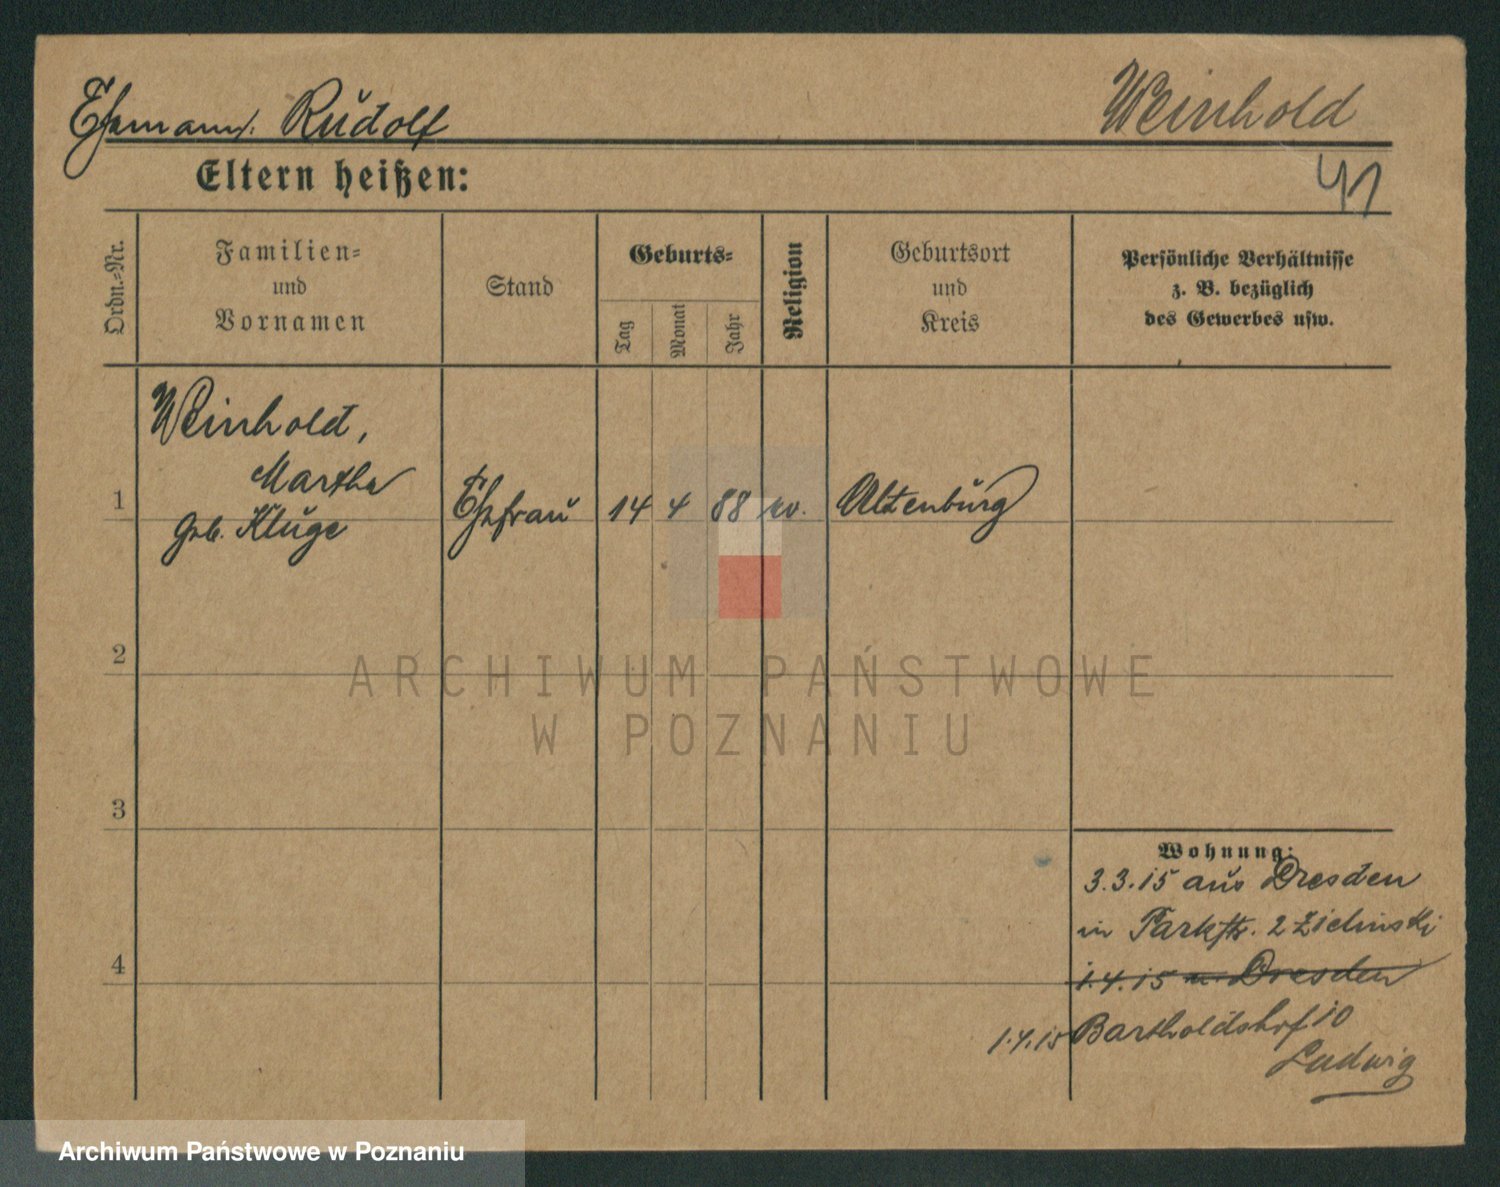 Ehemann: Rudolf
Weinhold
41
Eltern heißen:
Ordn.=Nr.
Familien=
und
Vornamen
Stand
Geburts=
Tag
Monat
Jahr
Religion
Geburtsort
und
Kreis
Persönliche Verhältnisse
z. B. bezüglich
des Gewerbes usw.
Weinhold,
Martha
geb. Kluge
1
Ehefrau
14
4
88
ev.
Altenburg
2
ARCHIWUM PAŃSTWOWE
W POZNANIU
3
Wohnung:
3.3.15 aus Dresden
in Parkstr. 2 Zielinski
4
1.4.15 n. Dresden
1.4.15 Bartholdshof 10
Ludwig
Archiwum Państwowe w Poznaniu